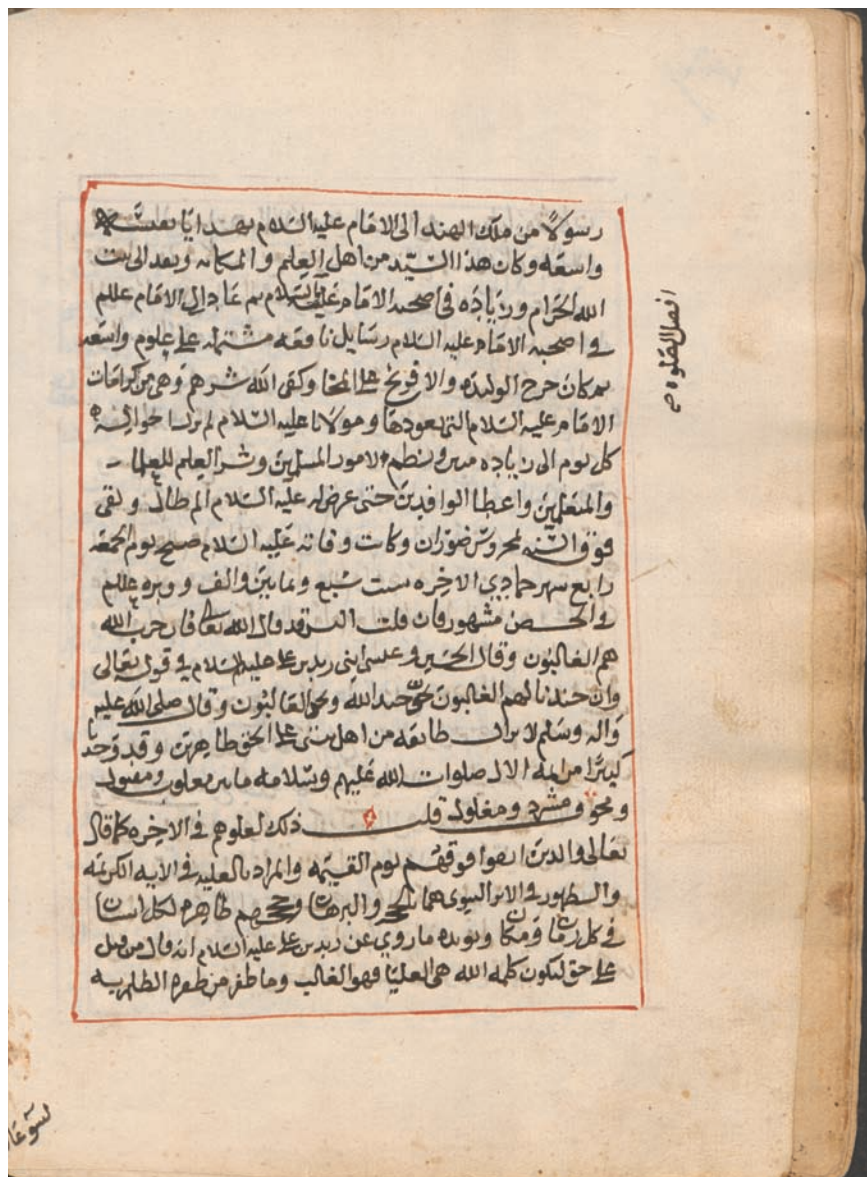 رسولا من ملك الهند الى الامام عليه السلام بهدايا نفيسه
واسعه وكان هذا السيد من اهل العلم والمكانه وبعد الى بيت
الله الحرام وزياده في اصحبه الامام عليه السلام ثم عاد الى الامام عللم
و اصحبه الامام عليه السلام رسايل نافعه مشتمله على علوم واسعه
ثم كان خرج الوليده والافرنج على المخا وكفى الله شرهم وهي من كرامات
الامام عليه السلام التي نعودها ومولانا عليه السلام لم
كل يوم الى زياده ونظم لامور المسلمين ونشر العلم للعلما
والمتعلمين واعطا الوافدين حتى عرض له عليه السلام الم وبقى
فوق السنه بمحروس ضوران وكانت وفاته عليه السلام صبح يوم الجمعه
رابع شهر جمادي الاخره سنت سبع وثمانين والف وقبره عللم
في الحصن مشهور فان قلت اليس قد قال الله تعالى فان حزب الله
هم الغالبون وقال الحسين وعيسى ابني زيد بن على عليهم السلام في قوله تعالى
وان جندنا لهم الغالبون نحن جند الله ونحن الغالبون وقال صلى الله عليه
واله وسلم لا يزال طايفه من اهل بيتي على الحق ظاهرين وقد وجدنا
كثيرًا من ايمه الال صلوات الله عليهم وسلامه ما بين مغلوب ومقتول
و ومشرد ومغلول قلت ذلك لعلوهم في الاخره كما قال
تعالى والذين اتقوا فوقهم يوم القيمه والمراد بالغلبه في الايه الكريمه
والظهور في الاثر النبوي هما بالحجه والبرهان وحججهم ظاهره لكل انسان
في كل زمان ومكان ويويده ما روي عن زيد بن على عليه السلام انه قال من قتل
على حق لتكون كلمه الله هي العليا فهو الغالب وما ظفر من ظفره الظلم به
افضل الصلوه